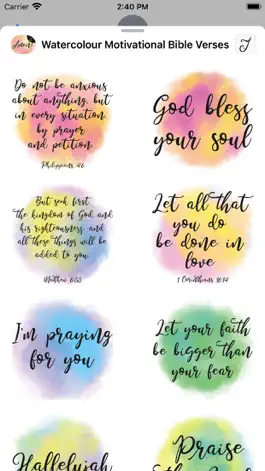 Carrier 2:40 PM
Amen
Watercolour Motivational Bible Verses
Do not be anxious
about anything, but
in every situation,
by prayer
and petition.
Philippians 4:6
God bless
your soul
But seek first
the kingdom of God and
his righteousness, and
all these things will be
added to you.
Matthew 6:33
Let all that
you do
be done in
love
1 Corinthians 16:14
I'm praying
for you
Let your faith
be bigger than
your fear
Hallelujah
Praise